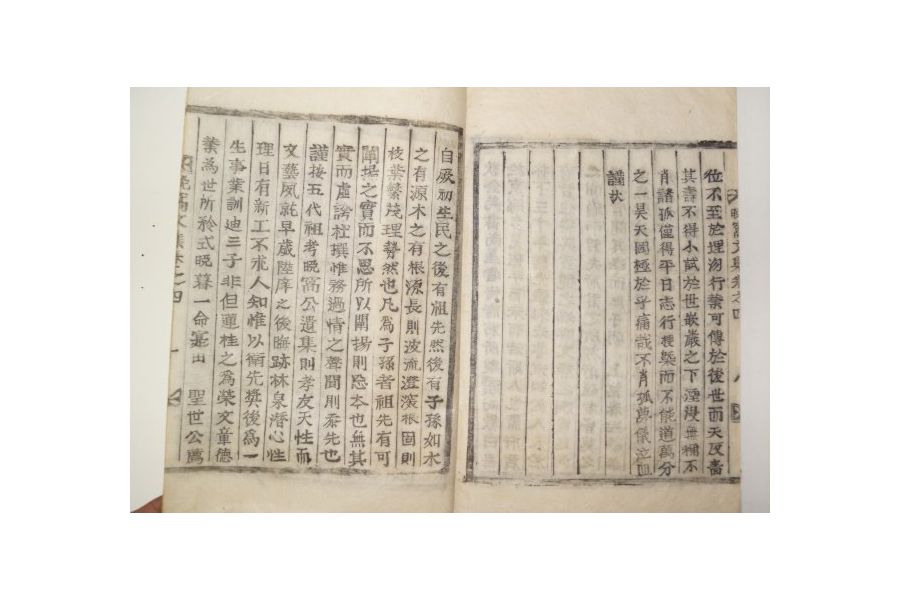 位不至於理勿行葉可傳於後世而天反嗇
其壽不得小試於世嵌巖之下湮沒無稱不
肖諸孤僅得平日志行梗槩而不能道萬分
之一昊天罔極於乎痛哉不肖孤萬儀泣血
謹狀
晚窩文集卷之四
自厥初生民之後有祖先然後有子孫如水
之有源木之有根源長則波流澄深根固則
枝葉繁茂理勢然也凡爲子孫者祖先有可
闡揚之實而不思所以闡揚則忘本也無其
實而虛誇杜撰惟務過情之聲聞則忝先也
謹按五代祖考晚窩公遺集則孝友天性而
文藝夙就早歲陞庠之後晦跡林泉潛心性
理日有新工不求人知惟以衛先奬後爲一
生事業訓迪三子非但蓮桂之爲榮文章德
業為世所矜式晩暮一命寔由 聖世公薦
晚窩文集卷之四 一